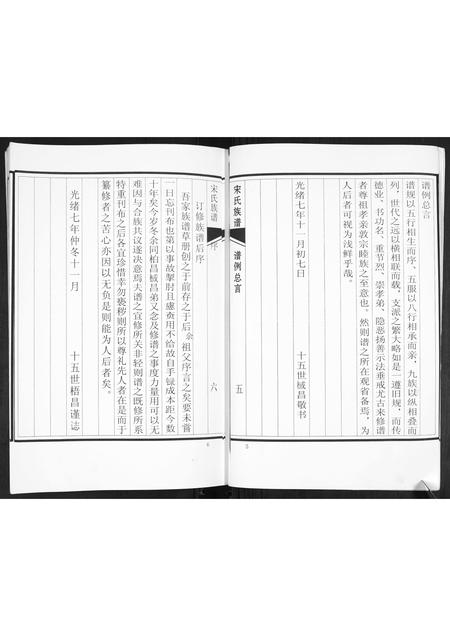 谱例总言
谱规以五行相生而序、五服以八行相承而亲，九族以纵相叠而
列，世代之远以横相联而载，支派之繁大略如是一遵旧规，而传
德业、书功名、重节烈、崇孝弟、隐恶扬善示法垂戒尤古来修谱
者尊祖孝亲敦宗睦族之至意也。然则谱之所在观省备焉，为
人后者可视为浅鲜乎哉。
光绪七年十一月初七日
十五世棫昌敬书
宋氏族谱
谱例总言
五
5
宋氏族谱
序
六
订修族谱后序
吾家族谱草册创之于前存之于后余祖父序言之矣要未嘗
一日忘刊布也第以事故掣肘且虑查用不给故自手録成本距今数
十年矣今岁冬余同柏昌棫昌弟又念及修谱之事度力量用可以无
难因与合族共议遂决意焉夫谱之宣修所关非轻则谱之既修所系
特重刊布之后各宜珍惜幸勿亵秽则所以尊礼先人者在是而于
纂修者之苦心亦因以无负是则能为人后者矣。
光绪七年仲冬十一月
十五世梧昌谨志
6